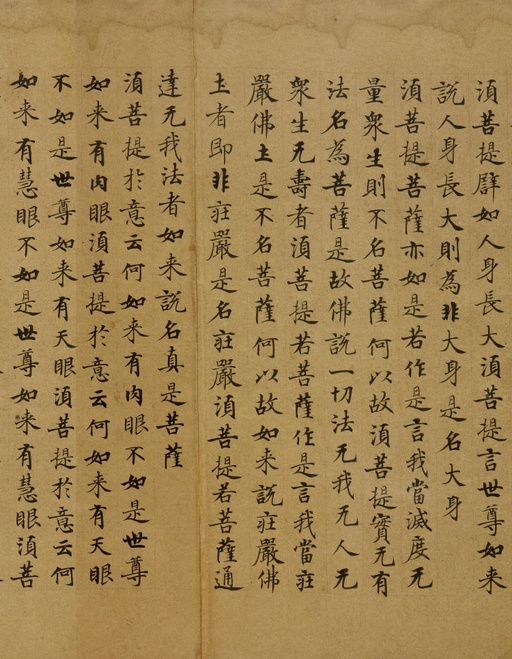 須菩提辟如人身長大須菩提言世尊如来
說人身長大則為非大身是名大身
須菩提菩薩亦如是若作是言我當滅度无
量衆生則不名菩薩何以故須菩提實无有
法名為菩薩是故佛說一切法无我无人无
衆生无壽者須菩提若菩薩作是言我當莊
嚴佛土是不名菩薩何以故如来說莊嚴佛
土者即非莊嚴是名莊嚴須菩提若菩薩通
達无我法者如来說名真是菩薩
須菩提於意云何如来有肉眼不如是世尊
如来有肉眼須菩提於意云何如来有天眼
不如是世尊如来有天眼須菩提於意云何
如来有慧眼不如是世尊如来有慧眼須菩